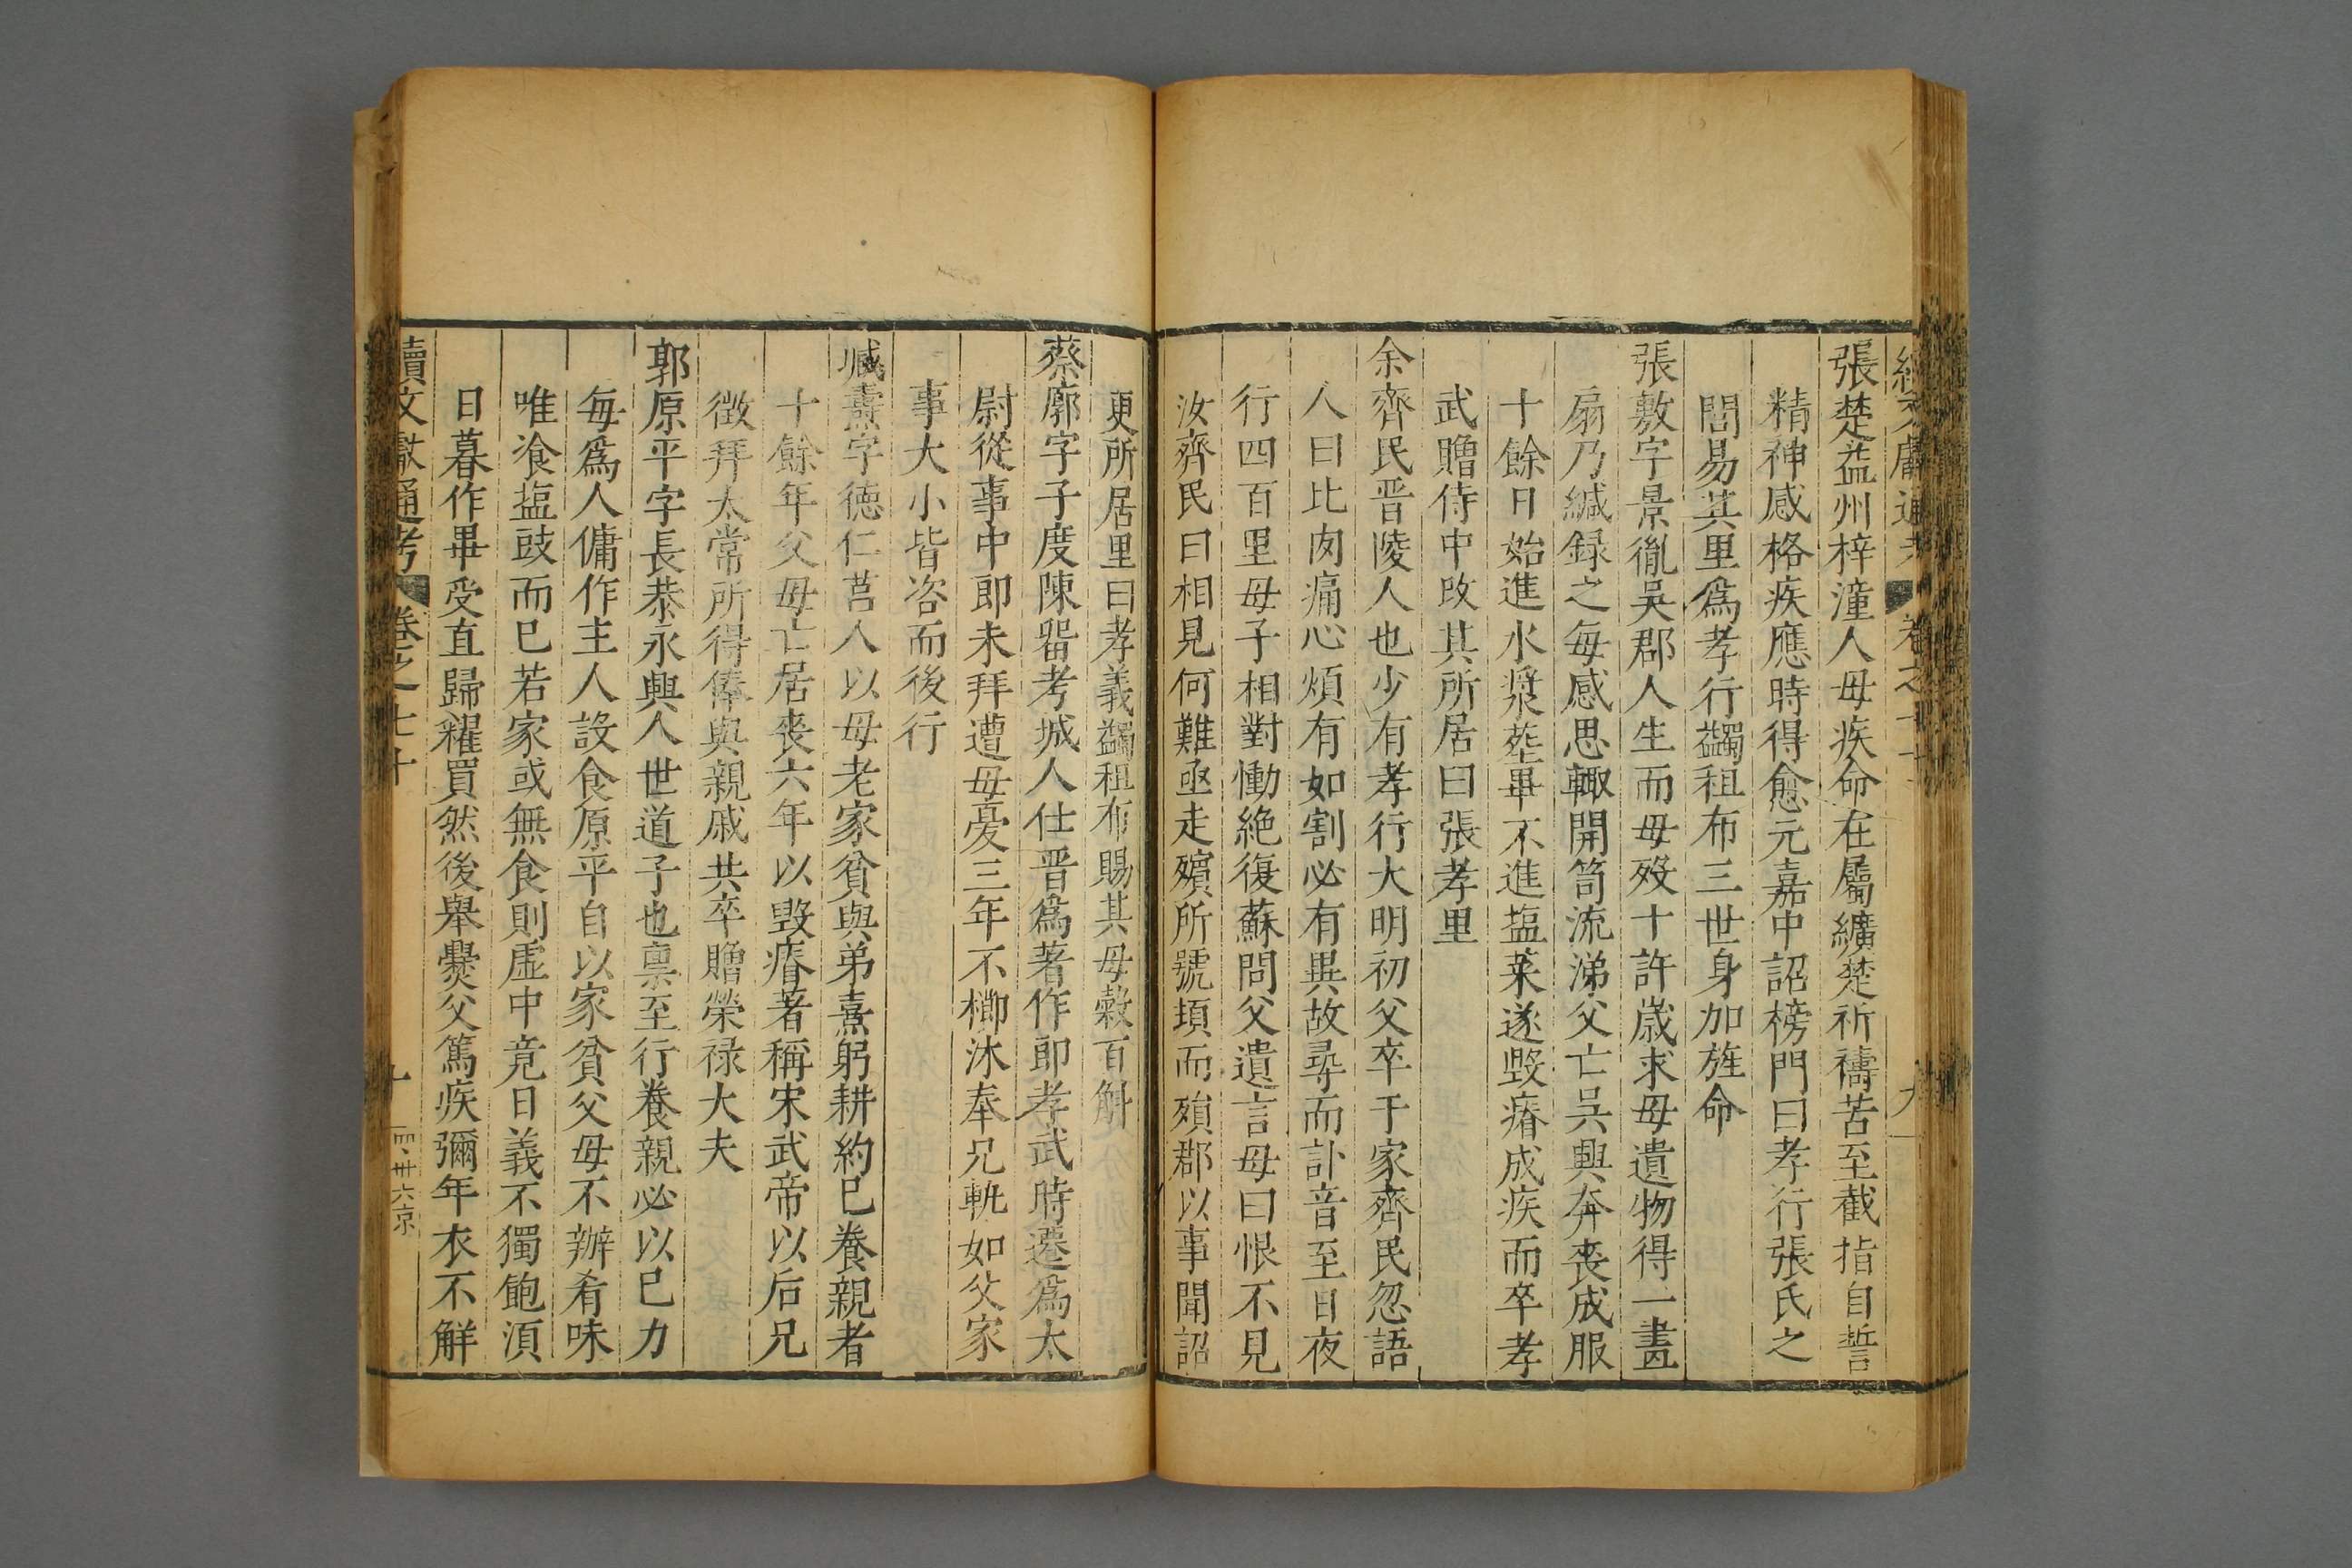 續文獻通考 卷之七十 九
張楚益州梓潼人母疾命在屬纊楚祈禱苦至截指自誓
精神感格疾應時得愈元嘉中詔榜門曰孝行張氏之
閭易其里爲孝行蠲租布三世身加旌命
張敷字景胤吳郡人生而母歿十許歲求母遺物得一畫
扇乃緘録之每感思輙開笥流涕父亡吳興奔喪成服
十餘日始進水漿塟畢不進塩菜遂毀瘠成疾而卒孝
武贈侍中改其所居曰張孝里
余齊民晋陵人也少有孝行大明初父卒于家齊民忽語
人曰比肉痛心煩有如割必有異故尋而訃音至日夜
行四百里母子相對慟絶復蘇問父遺言母曰恨不見
汝齊民曰相見何難亟走殯所號頃而殞郡以事聞詔
更所居里曰孝義蠲租布賜其母穀百斛
蔡廓字子度陳畱考城人仕晋爲著作郎孝武時遷爲太
尉從事中郎未拜遭母憂三年不櫛沐奉兄軌如父家
事大小皆咨而後行
臧燾字德仁莒人以母老家貧與弟熹躬耕約已養親者
十餘年父母亡居喪六年以毀瘠著稱宋武帝以后兄
徵拜太常所得俸與親戚共卒贈榮禄大夫
郭原平字長恭永興人世道子也禀至行養親必以已力
每爲人傭作主人設食原平自以家貧父母不辦肴味
唯飡塩豉而已若家或無食則虛中竟日義不獨飽湏
日暮作畢受直歸糴買然後舉爨父篤疾彌年衣不解
續文獻通考 卷之七十 十 四卅六京